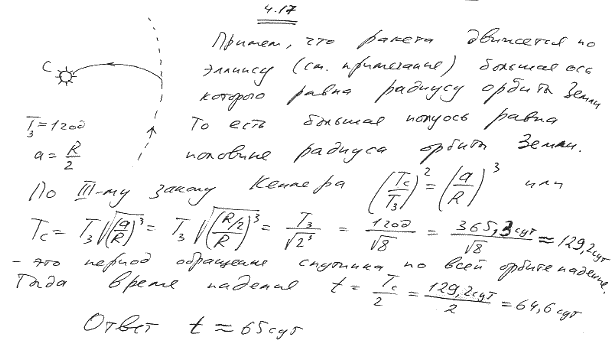 4.17
Примем, что ракета движется по
эллипсу (см. примечание) большая ось
С
которого равна радиусу орбиты Земли
T_З = 1 год
То есть большая полуось равна
a = R/2
половине радиуса орбиты Земли.
По III-му закону Кеплера (T_с/T_З)^2 = (a/R)^3 или
T_с = T_З √(a/R)^3 = T_З √((R/2)/R)^3 = T_З/√2^3 = 1 год/√8 = 365,3 сут/√8 ≈ 129,2 сут
- это период обращения спутника по всей орбите падение.
Тогда время падения t = T_с/2 = 129,2 сут/2 = 64,6 сут
Ответ t ≈ 65 сут